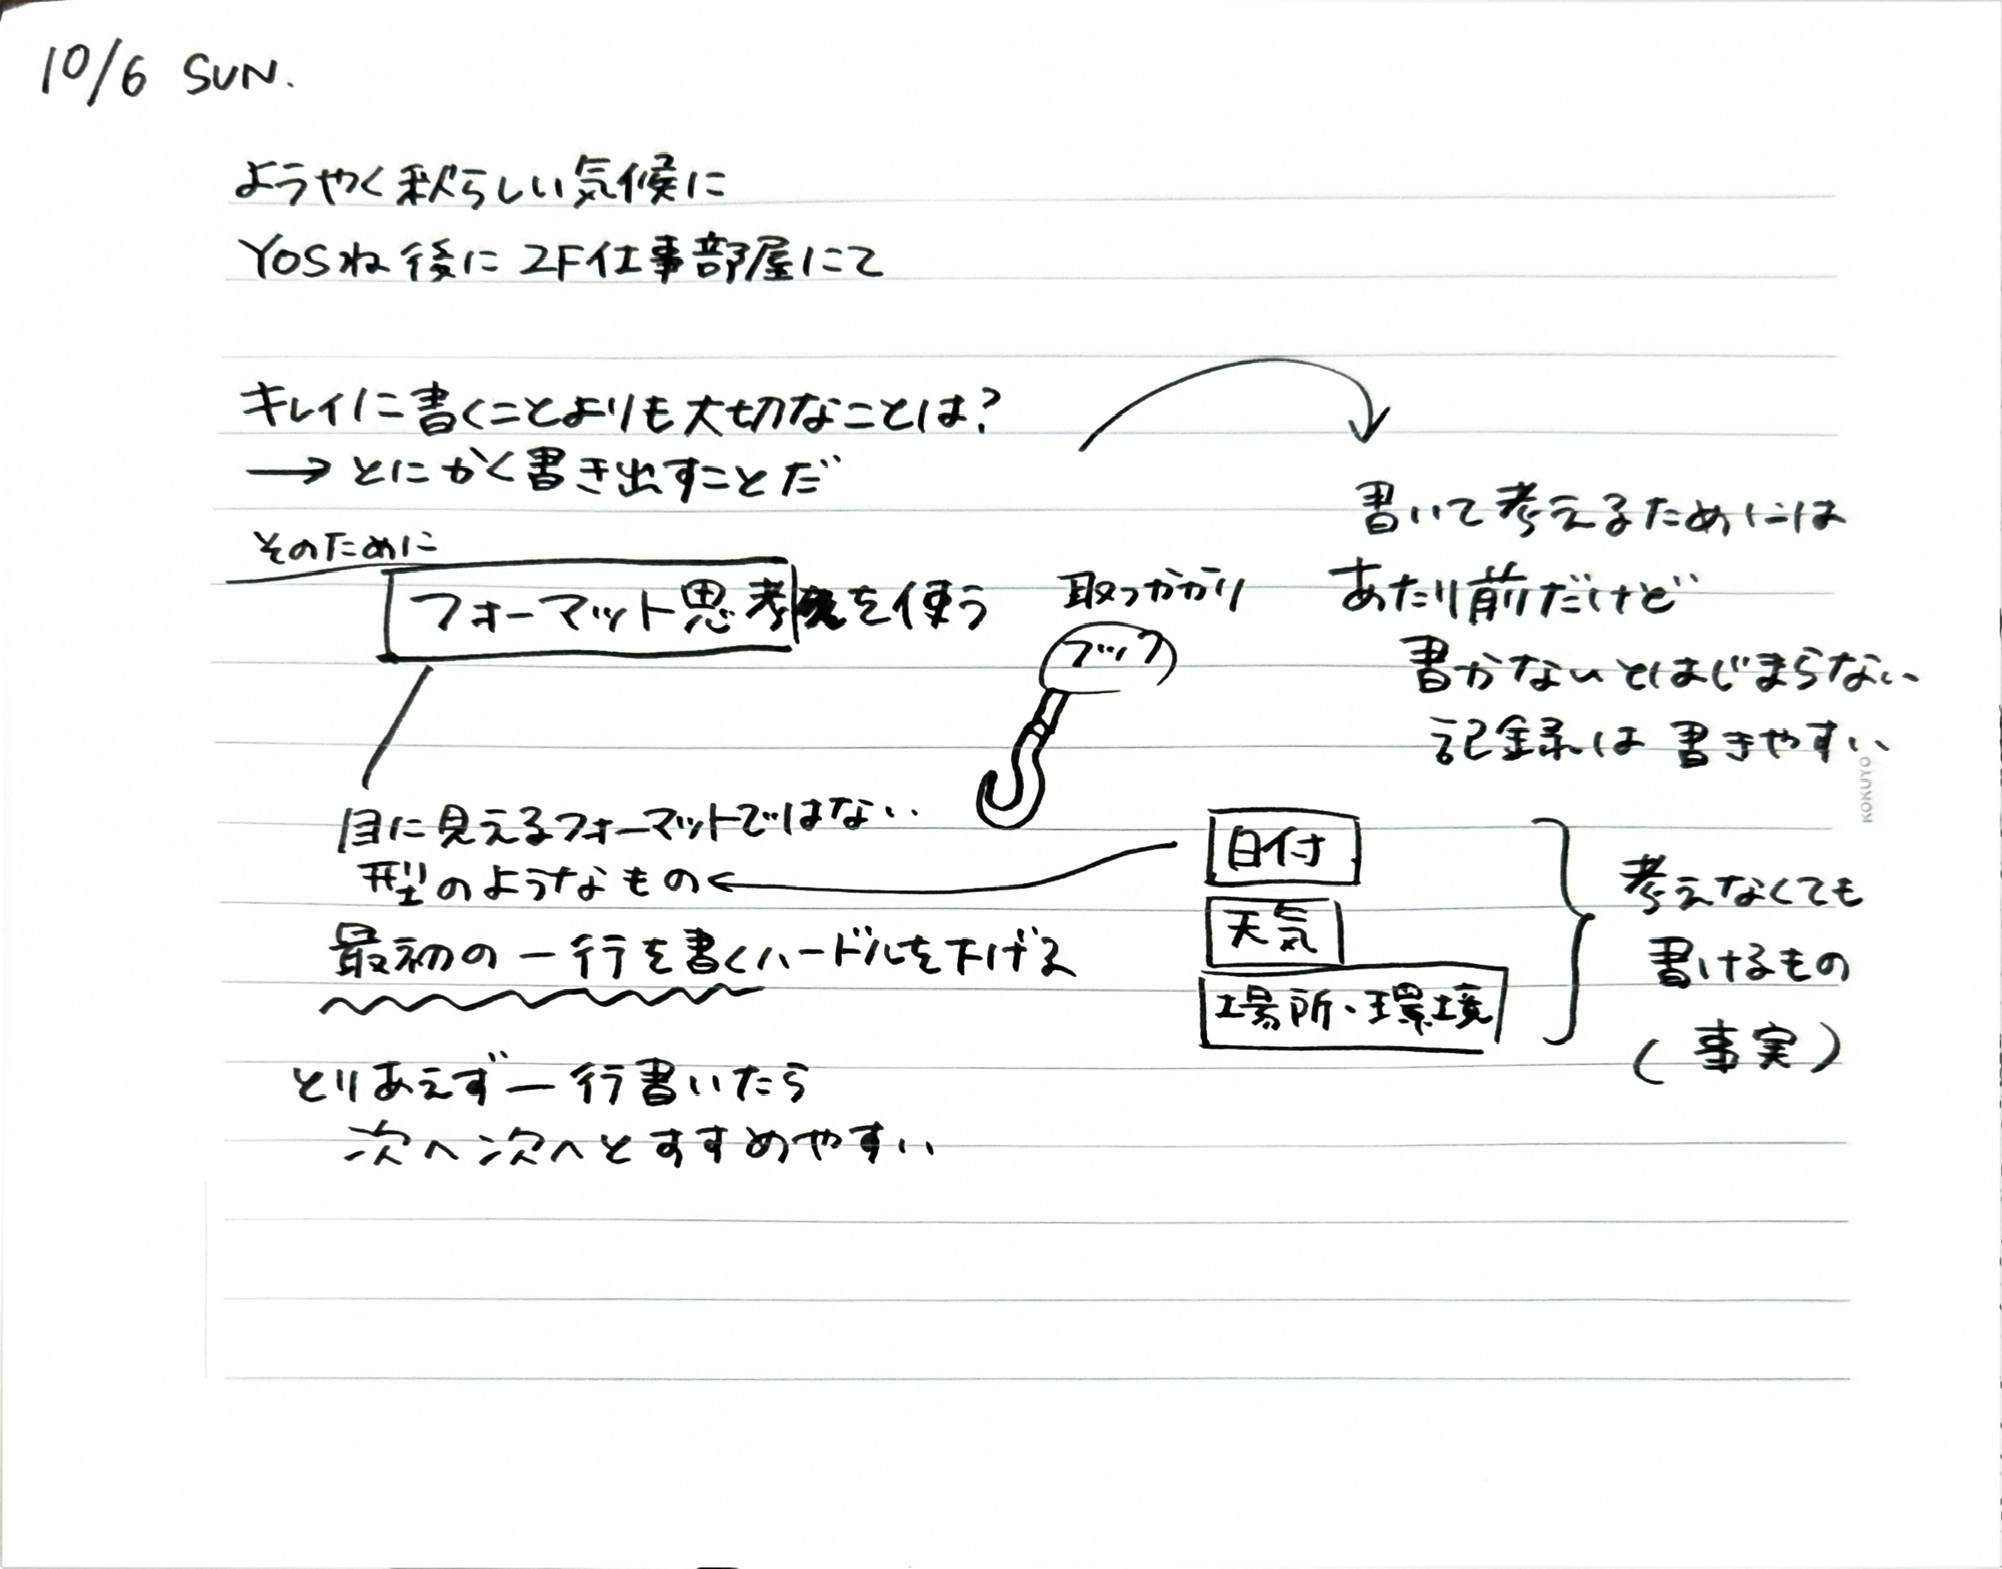 10/6 SUN.
ようやく秋らしい気候に
YOSね後に 2F仕事部屋にて
キレイに書くことよりも大切なことは?
→ とにかく書き出すことだ
そのために
フォーマット思考を使う
取っかかり
フック
目に見えるフォーマットではない
型のようなもの←
最初の一行を書くハードルを下げる
とりあえず一行書いたら
次へ次へとすすめやすい
書いて考えるためには
あたり前だけど
書かないとはじまらない
記録は書きやすい
日付
天気
場所・環境
考えなくても
書けるもの
(事実)
KOKUYO